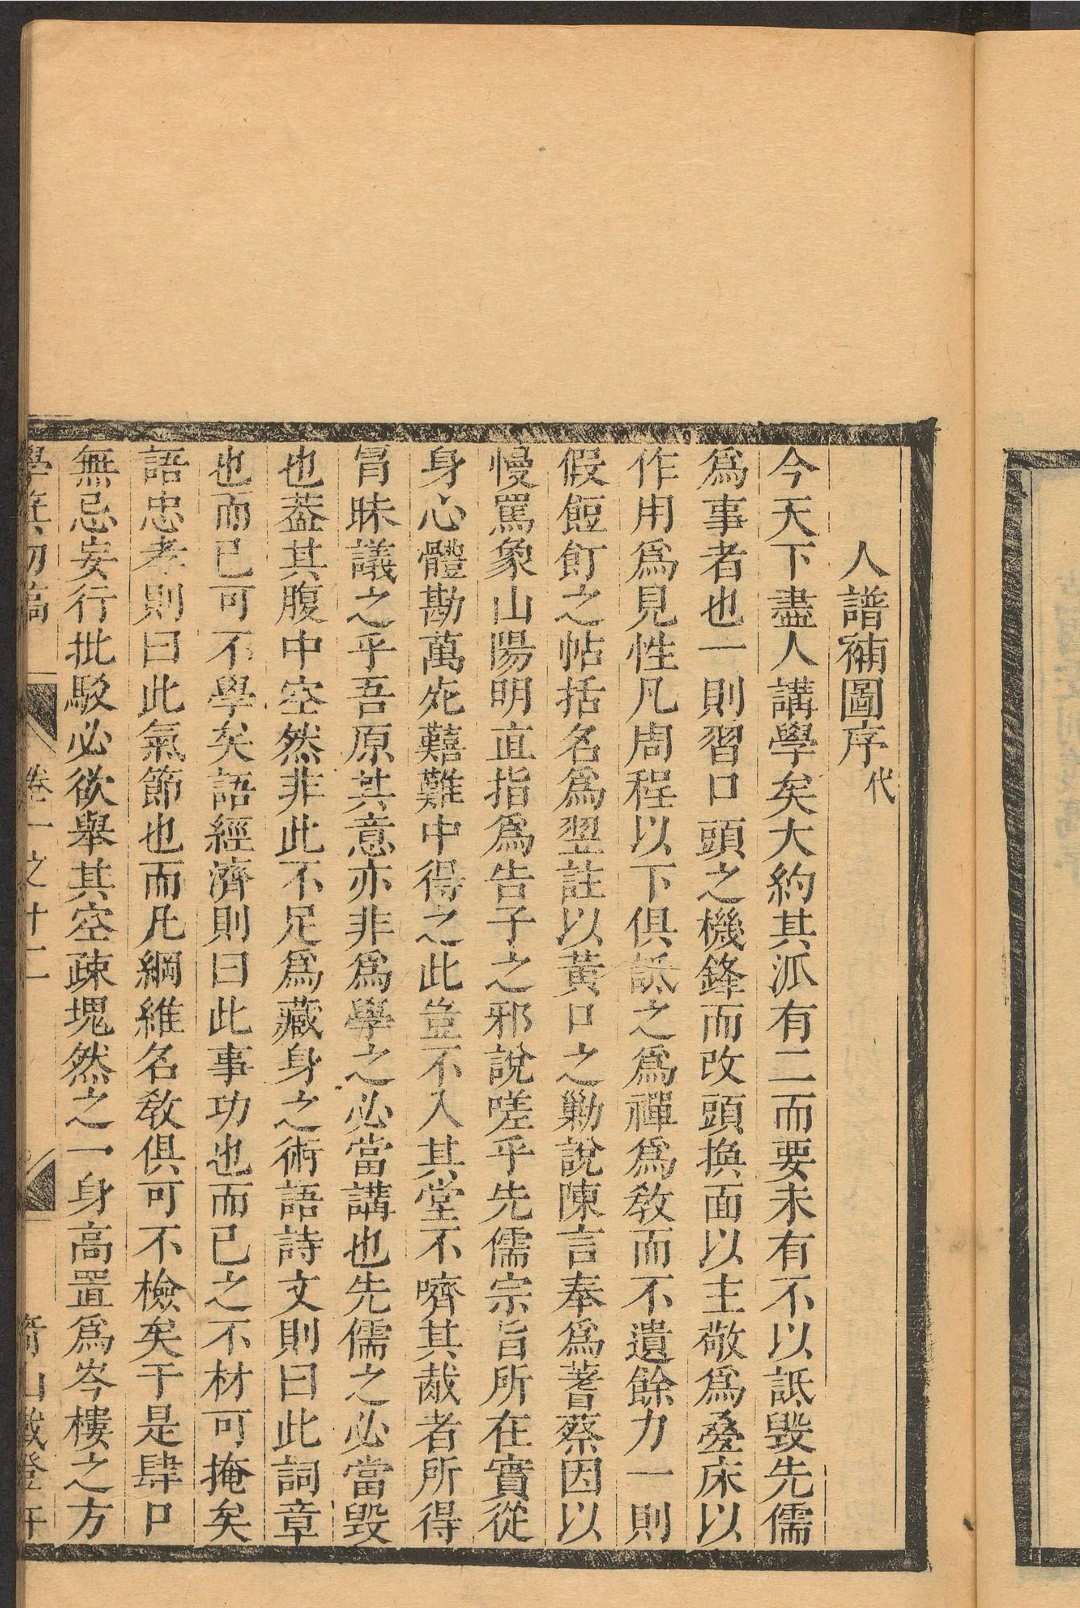 人譜補圖序代
今天下盡人講學矣大約其派有二而要未有不以詆毀先儒
爲事者也一則習口頭之機鋒而改頭換面以主敬爲疊床以
作用爲見性凡周程以下俱詆之爲禪爲敎而不遺餘力一則
假餖飣之帖括名爲翌註以黃口之勦說陳言奉爲蓍蔡因以
慢罵象山陽明直指爲告子之邪說嗟乎先儒宗旨所在實從
身心體勘萬死囏難中得之此豈不入其堂不嚌其胾者所得
冐昧議之乎吾原其意亦非爲學之必當講也先儒之必當毀
也葢其腹中空然非此不足爲藏身之術語詩文則曰此詞章
也而已可不學矣語經濟則曰此事功也而已之不材可掩矣
語忠孝則曰此氣節也而凡綱維名敎俱可不檢矣于是肆口
無忌妄行批駁必欲舉其空疎塊然之一身高置爲岑樓之方
學箕初稿 卷一之十二